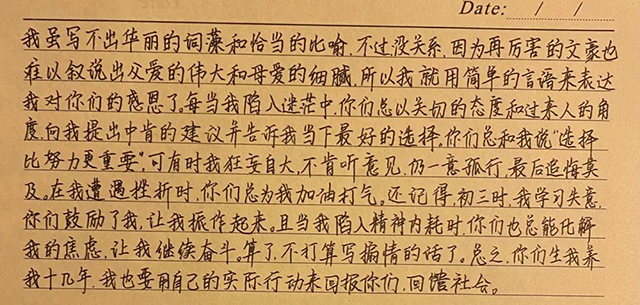 Date: / /
我虽写不出华丽的词藻和恰当的比喻，不过没关系，因为再厉害的文豪也
难以叙说出父爱的伟大和母爱的细腻，所以我就用简单的言语来表达
我对你们的感恩了。每当我陷入迷茫中，你们总以关切的态度和过来人的角
度向我提出中肯的建议并告诉我当下最好的选择。你们总和我说“选择
比努力更重要”，可有时我狂妄自大，不肯听意见，仍一意孤行，最后追悔莫
及。在我遭遇挫折时，你们总为我加油打气。还记得，初三时，我学习失意，
你们鼓励了我，让我振作起来。且当我陷入精神内耗时，你们也总能化解
我的焦虑，让我继续奋斗。算了，不打算写煽情的话了。总之，你们生我养
我十几年，我也要用自己的实际行动来回报你们，回馈社会。